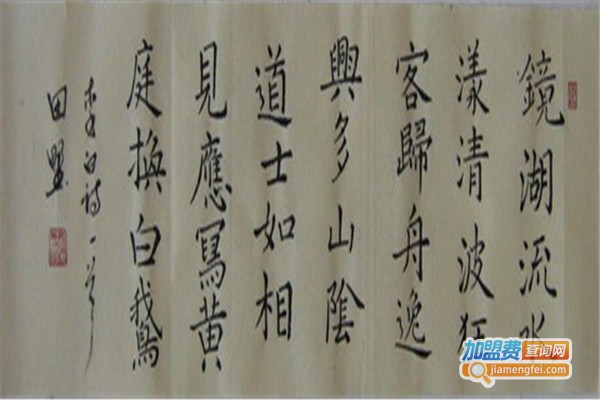 鏡湖流水
漾清波狂
客歸舟逸
興多山陰
道士如相
見應寫黄
庭換白鵝
李白詩一首
田堅
加盟费查询网
jiamengfei.com